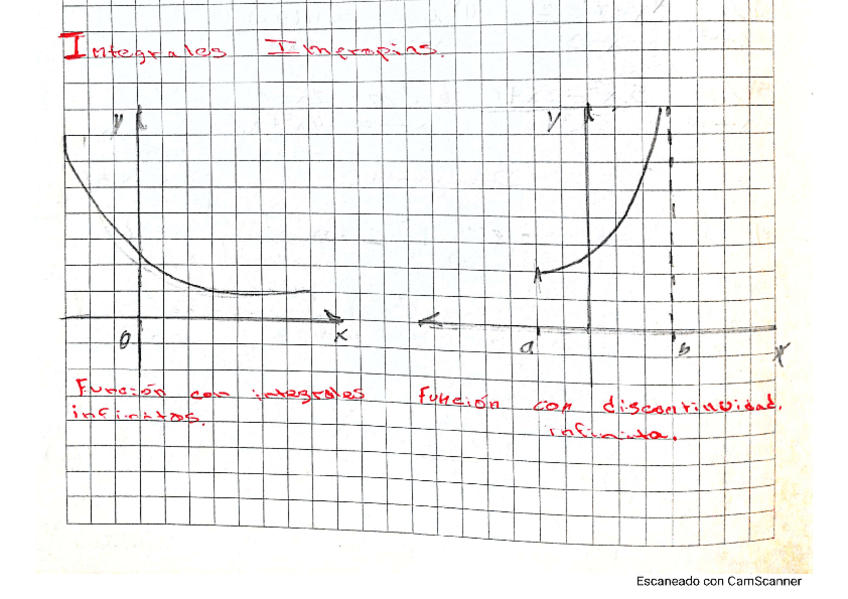 Integrales Impropias.
y
y
0
x
a
b
x
Función con integrales
infinitas.
Función con discontinuidad.
infinita.
Escaneado con CamScanner